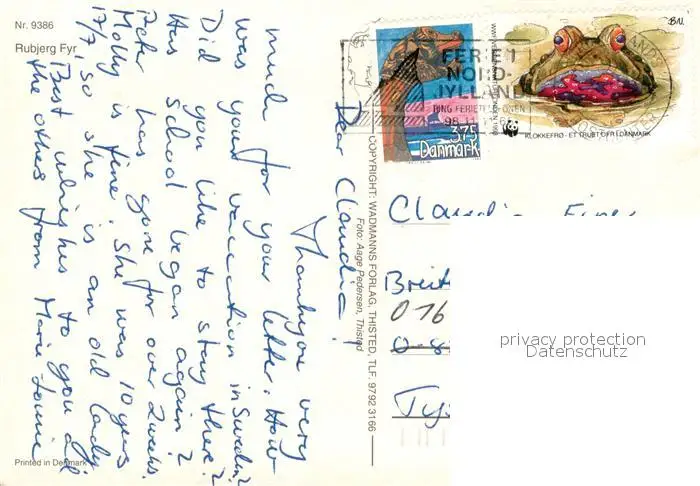 Nr. 9386
Rubjerg Fyr
Dear Claudia!
Thank you very
much for your letter. How
was your vaccation in Sweden?
Did you like to stay there?
Has school began again?
Peter has gone for over 2 weeks.
Molly is fine. She was 10 years
17/7, so she is an old lady.
Best whishes to you all
the others from Marie-Louise
Printed in Denmark
COPYRIGHT: WADMANNS FORLAG, THISTED, TLF. 9792 3166
Foto: Aage Pedersen, Thisted
FERIE I
NORD-
JYLLAND
RING FERIETELEFONEN
98 11
3.75
Danmark
BN.
WWF VERDENSNATURFONDEN 1990
KLOKKEFRØ - ET TRUET DYR I DANMARK
Claudia
Breit
O 76
O-8
Tys
privacy protection
Datenschutz